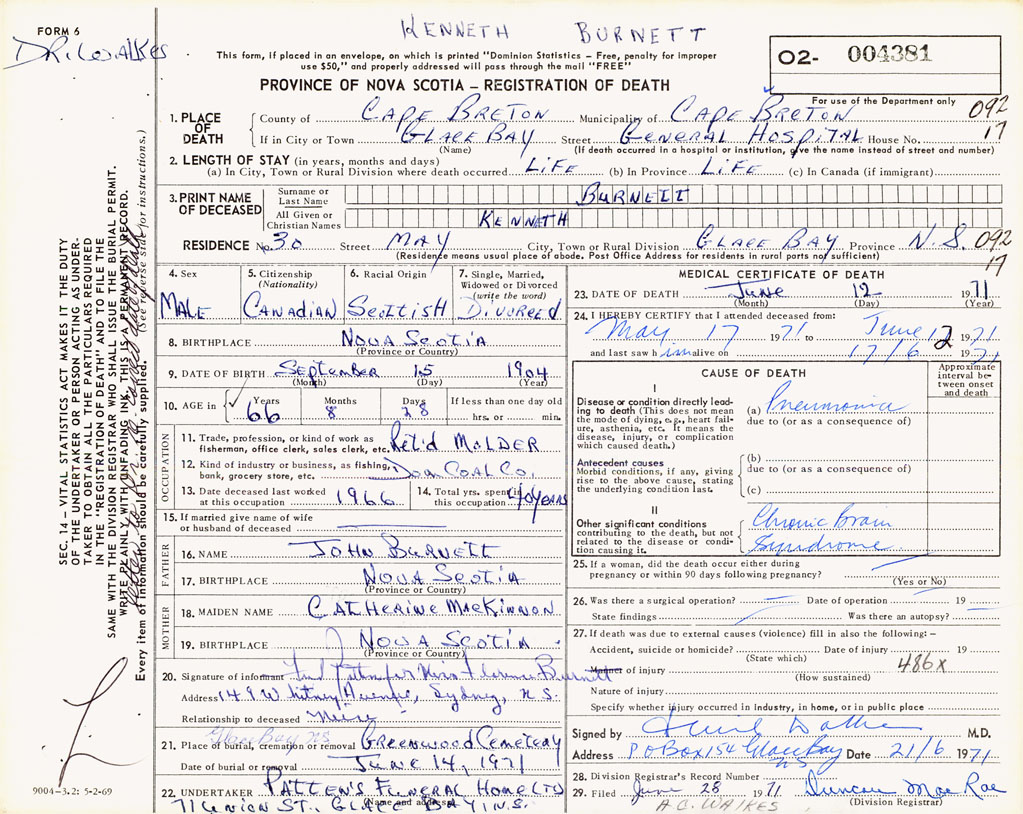 FORM 6
KENNETH BURNETT
DR. WALKES
This form, if placed in an envelope, on which is printed "Dominion Statistics – Free, penalty for improper
use $50," and properly addressed will pass through the mail "FREE"
O2- 004381
For use of the Department only
PROVINCE OF NOVA SCOTIA – REGISTRATION OF DEATH
1. PLACE OF DEATH County of CAPE BRETON Municipality of CAPE BRETON 092
If in City or Town GLACE BAY Street GENERAL HOSPITAL House No. 17
(Name) (If death occurred in a hospital or institution, give the name instead of street and number)
2. LENGTH OF STAY (in years, months and days)
(a) In City, Town or Rural Division where death occurred LIFE (b) In Province LIFE (c) In Canada (if immigrant)
3. PRINT NAME OF DECEASED Surname or Last Name BURNETT
All Given or Christian Names KENNETH
RESIDENCE No. 30 Street MAY City, Town or Rural Division GLACE BAY Province N.S. 092
(Residence means usual place of abode. Post Office Address for residents in rural parts not sufficient) 17
4. Sex MALE
5. Citizenship (Nationality) CANADIAN
6. Racial Origin SCOTTISH
7. Single, Married, Widowed or Divorced (write the word) DIVORCED
8. BIRTHPLACE NOVA SCOTIA
(Province or Country)
9. DATE OF BIRTH September 15 1904
(Month) (Day) (Year)
10. AGE in Years 66 Months 8 Days 28 If less than one day old hrs. or min.
OCCUPATION
11. Trade, profession, or kind of work as fisherman, office clerk, sales clerk, etc. Ret'd MOLDER
12. Kind of industry or business, as fishing, bank, grocery store, etc. Dom COAL CO.
13. Date deceased last worked at this occupation 1966
14. Total yrs. spent in this occupation 40 YEARS
15. If married give name of wife or husband of deceased
FATHER
16. NAME JOHN BURNETT
17. BIRTHPLACE NOVA SCOTIA
(Province or Country)
MOTHER
18. MAIDEN NAME CATHERINE MacKINNON
19. BIRTHPLACE NOVA SCOTIA
(Province or Country)
20. Signature of informant for Miss Florence Burnett
Address 149 Whitney Avenue, Sydney, N.S.
Relationship to deceased Neice
Glace Bay NS
21. Place of burial, cremation or removal GREENWOOD CEMETEAY
Date of burial or removal JUNE 14, 1971
22. UNDERTAKER PATTEN'S FUNERAL HOME LTD
(Name and address)
71 UNION ST., GLACE BAY, N.S.
MEDICAL CERTIFICATE OF DEATH
23. DATE OF DEATH June 12 1971
(Month) (Day) (Year)
24. I HEREBY CERTIFY that I attended deceased from:
May 17 1971 to June 12 1971
and last saw him alive on 17/6 1971
CAUSE OF DEATH
Approximate interval between onset and death
I
Disease or condition directly leading to death (This does not mean the mode of dying, e.g., heart failure, asthenia, etc. It means the disease, injury, or complication which caused death.)
(a) Pneumonia
due to (or as a consequence of)
Antecedent causes
Morbid conditions, if any, giving rise to the above cause, stating the underlying condition last.
(b)
due to (or as a consequence of)
(c)
II
Other significant conditions contributing to the death, but not related to the disease or condition causing it.
Chronic Brain
Syndrome
25. If a woman, did the death occur either during pregnancy or within 90 days following pregnancy?
(Yes or No)
26. Was there a surgical operation? Date of operation 19
State findings Was there an autopsy?
27. If death was due to external causes (violence) fill in also the following: –
Accident, suicide or homicide? Date of injury 19
(State which)
Manner of injury 486x
(How sustained)
Nature of injury
Specify whether injury occurred in industry, in home, or in public place
Signed by M.D.
Address P O Box 154 Glace Bay NS Date 21/6 1971
28. Division Registrar's Record Number
29. Filed June 28 1971 Duncan MacRae
(Division Registrar)
A.C. WALKES
SEC. 14 – VITAL STATISTICS ACT MAKES IT THE DUTY
OF THE UNDERTAKER OR PERSON ACTING AS UNDER-
TAKER TO OBTAIN ALL THE PARTICULARS REQUIRED
IN THE "REGISTRATION OF DEATH" AND TO FILE THE
SAME WITH THE DIVISION REGISTRAR WHO SHALL ISSUE THE BURIAL PERMIT.
WRITE PLAINLY WITH UNFADING INK, THIS IS A PERMANENT RECORD.
Every item of information should be carefully supplied. (See reverse side for instructions.)
9004-3.2: 5-2-69